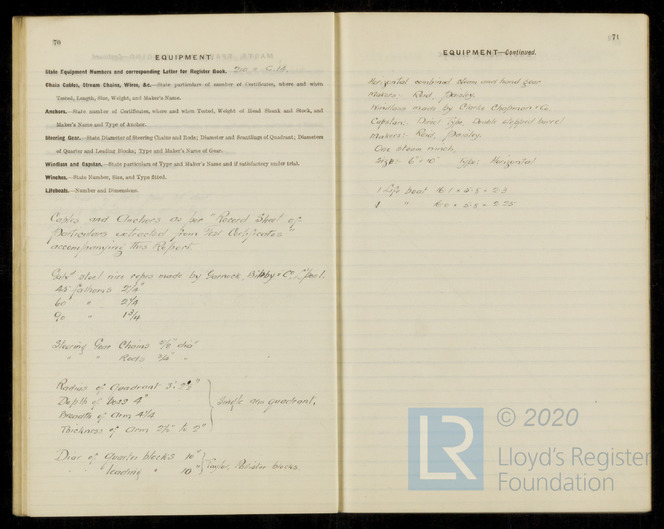 70
EQUIPMENT.
State Equipment Numbers and corresponding Letter for Register Book.
Chain Cables, Stream Chains, Wires, &c.—State particulars of number of Certificates, where and when
Tested, Length, Size, Weight, and Maker's Name.
Anchors.—State number of Certificates, where and when Tested, Weight of Head Shank and Stock, and
Maker's Name and Type of Anchor.
Steering Gear.—State Diameter of Steering Chains and Rods; Diameter and Scantlings of Quadrant; Diameters
of Quarter and Leading Blocks; Type and Maker's Name of Gear.
Windlass and Capstan.—State particulars of Type and Maker's Name and if satisfactory under trial.
Winches.—State Number, Size, and Type fitted.
Lifeboats.—Number and Dimensions.
Cables and Anchors as per "Record Sheet of
Particulars extracted from Test Certificates"
accompanying this Report.
steel wire ropes made by Garnock, Bibby & Co. L'pool.
45 fathoms 2¼"
60 "
90 " 1¾
Steering Gear Chains dia
" " Rods "
Radius of Quadrant
Depth of boss 4"
Breadth of arm
Thickness of arm to 2"
Single arm quadrant.
Diar of Quarter blocks 10"
" leading " 10"
blocks
71
EQUIPMENT—Continued.
Horizontal combined steam and hand gear
Makers:- Reid, Paisley.
Windlass made by Clarke Chapman & Co.
Capstan:- Type, Double barrel
Makers:- Reid, Paisley.
One steam winch,
Size:- 6" × 10" Type:- Horizontal
1 Life boat
1 "
LR
© 2020
Lloyd's Register
Foundation